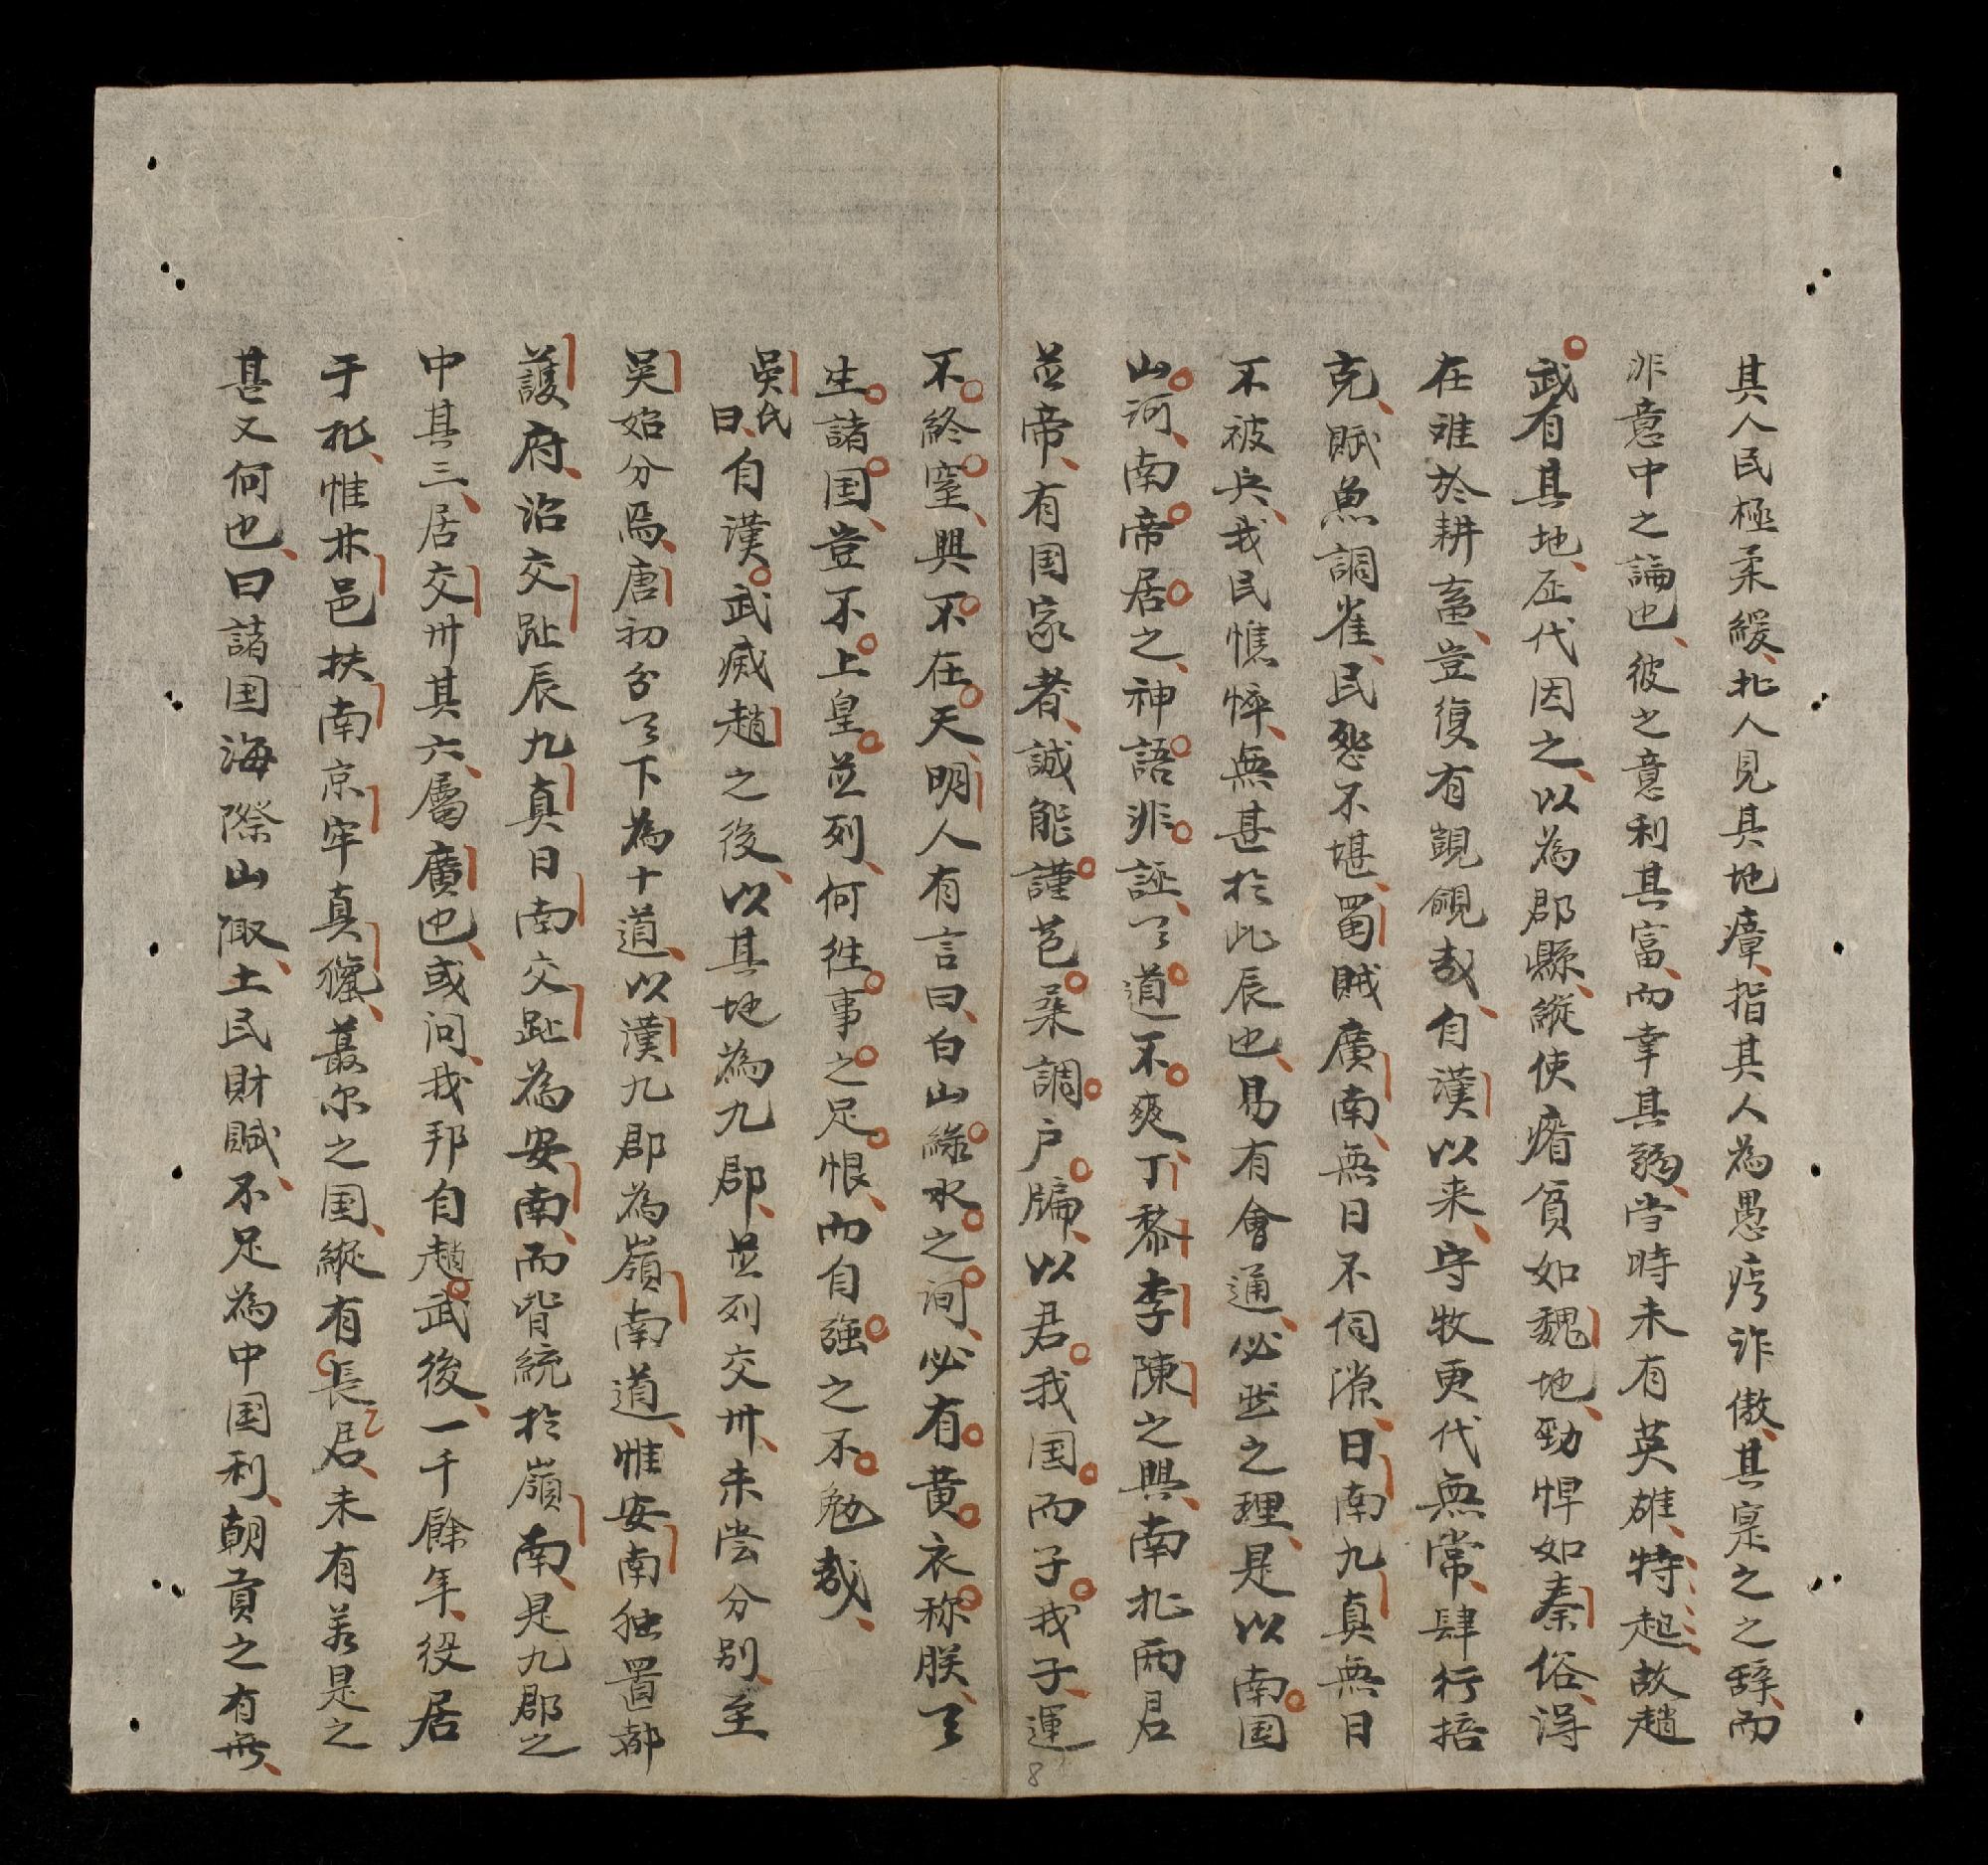 其人民極柔緩北人見其地瘴指其人為愚痴詐傲其寔之之辞而
非意中之論也彼之意利其富而幸其弱当時未有英雄特起故趙
武有其地历代因之以為郡縣縱使瘠貧如魏地勁悍如秦俗得
在难於耕畜豈復有覬覦哉自漢以来守牧更代無常肆行掊
克賦魚調雀民怨不堪蜀賊廣南無日不伺隙日南九真無日
不被兵我民憔悴無甚扵此辰也易有會通必然之理是以南国
山河南帝居之神語非誣天道不爽丁黎李陳之興南北两君
並帝有国家者誠能謹苞桑調户牖以君我国而子我子運
不終窒興不在天明人有言曰白山綠水之间必有黄衣称朕天
生諸国豈不上皇並列何徃事之足恨而自強之不勉哉
吴氏曰自漢武威趙之後以其地為九郡並列交州未尝分别至
吴始分焉唐初分天下為十道以漢九郡為嶺南道惟安南独置都
護府治交趾辰九真日南交趾為安南而皆統扵嶺南是九郡之
中其三居交州其六屬廣也或问我邦自趙武後一千餘年役居
于北惟林邑扶南京牢真臘蕞尔之国縱有長君未有若是之
甚又何也曰諸国海際山陬土民財賦不足為中国利朝貢之有無